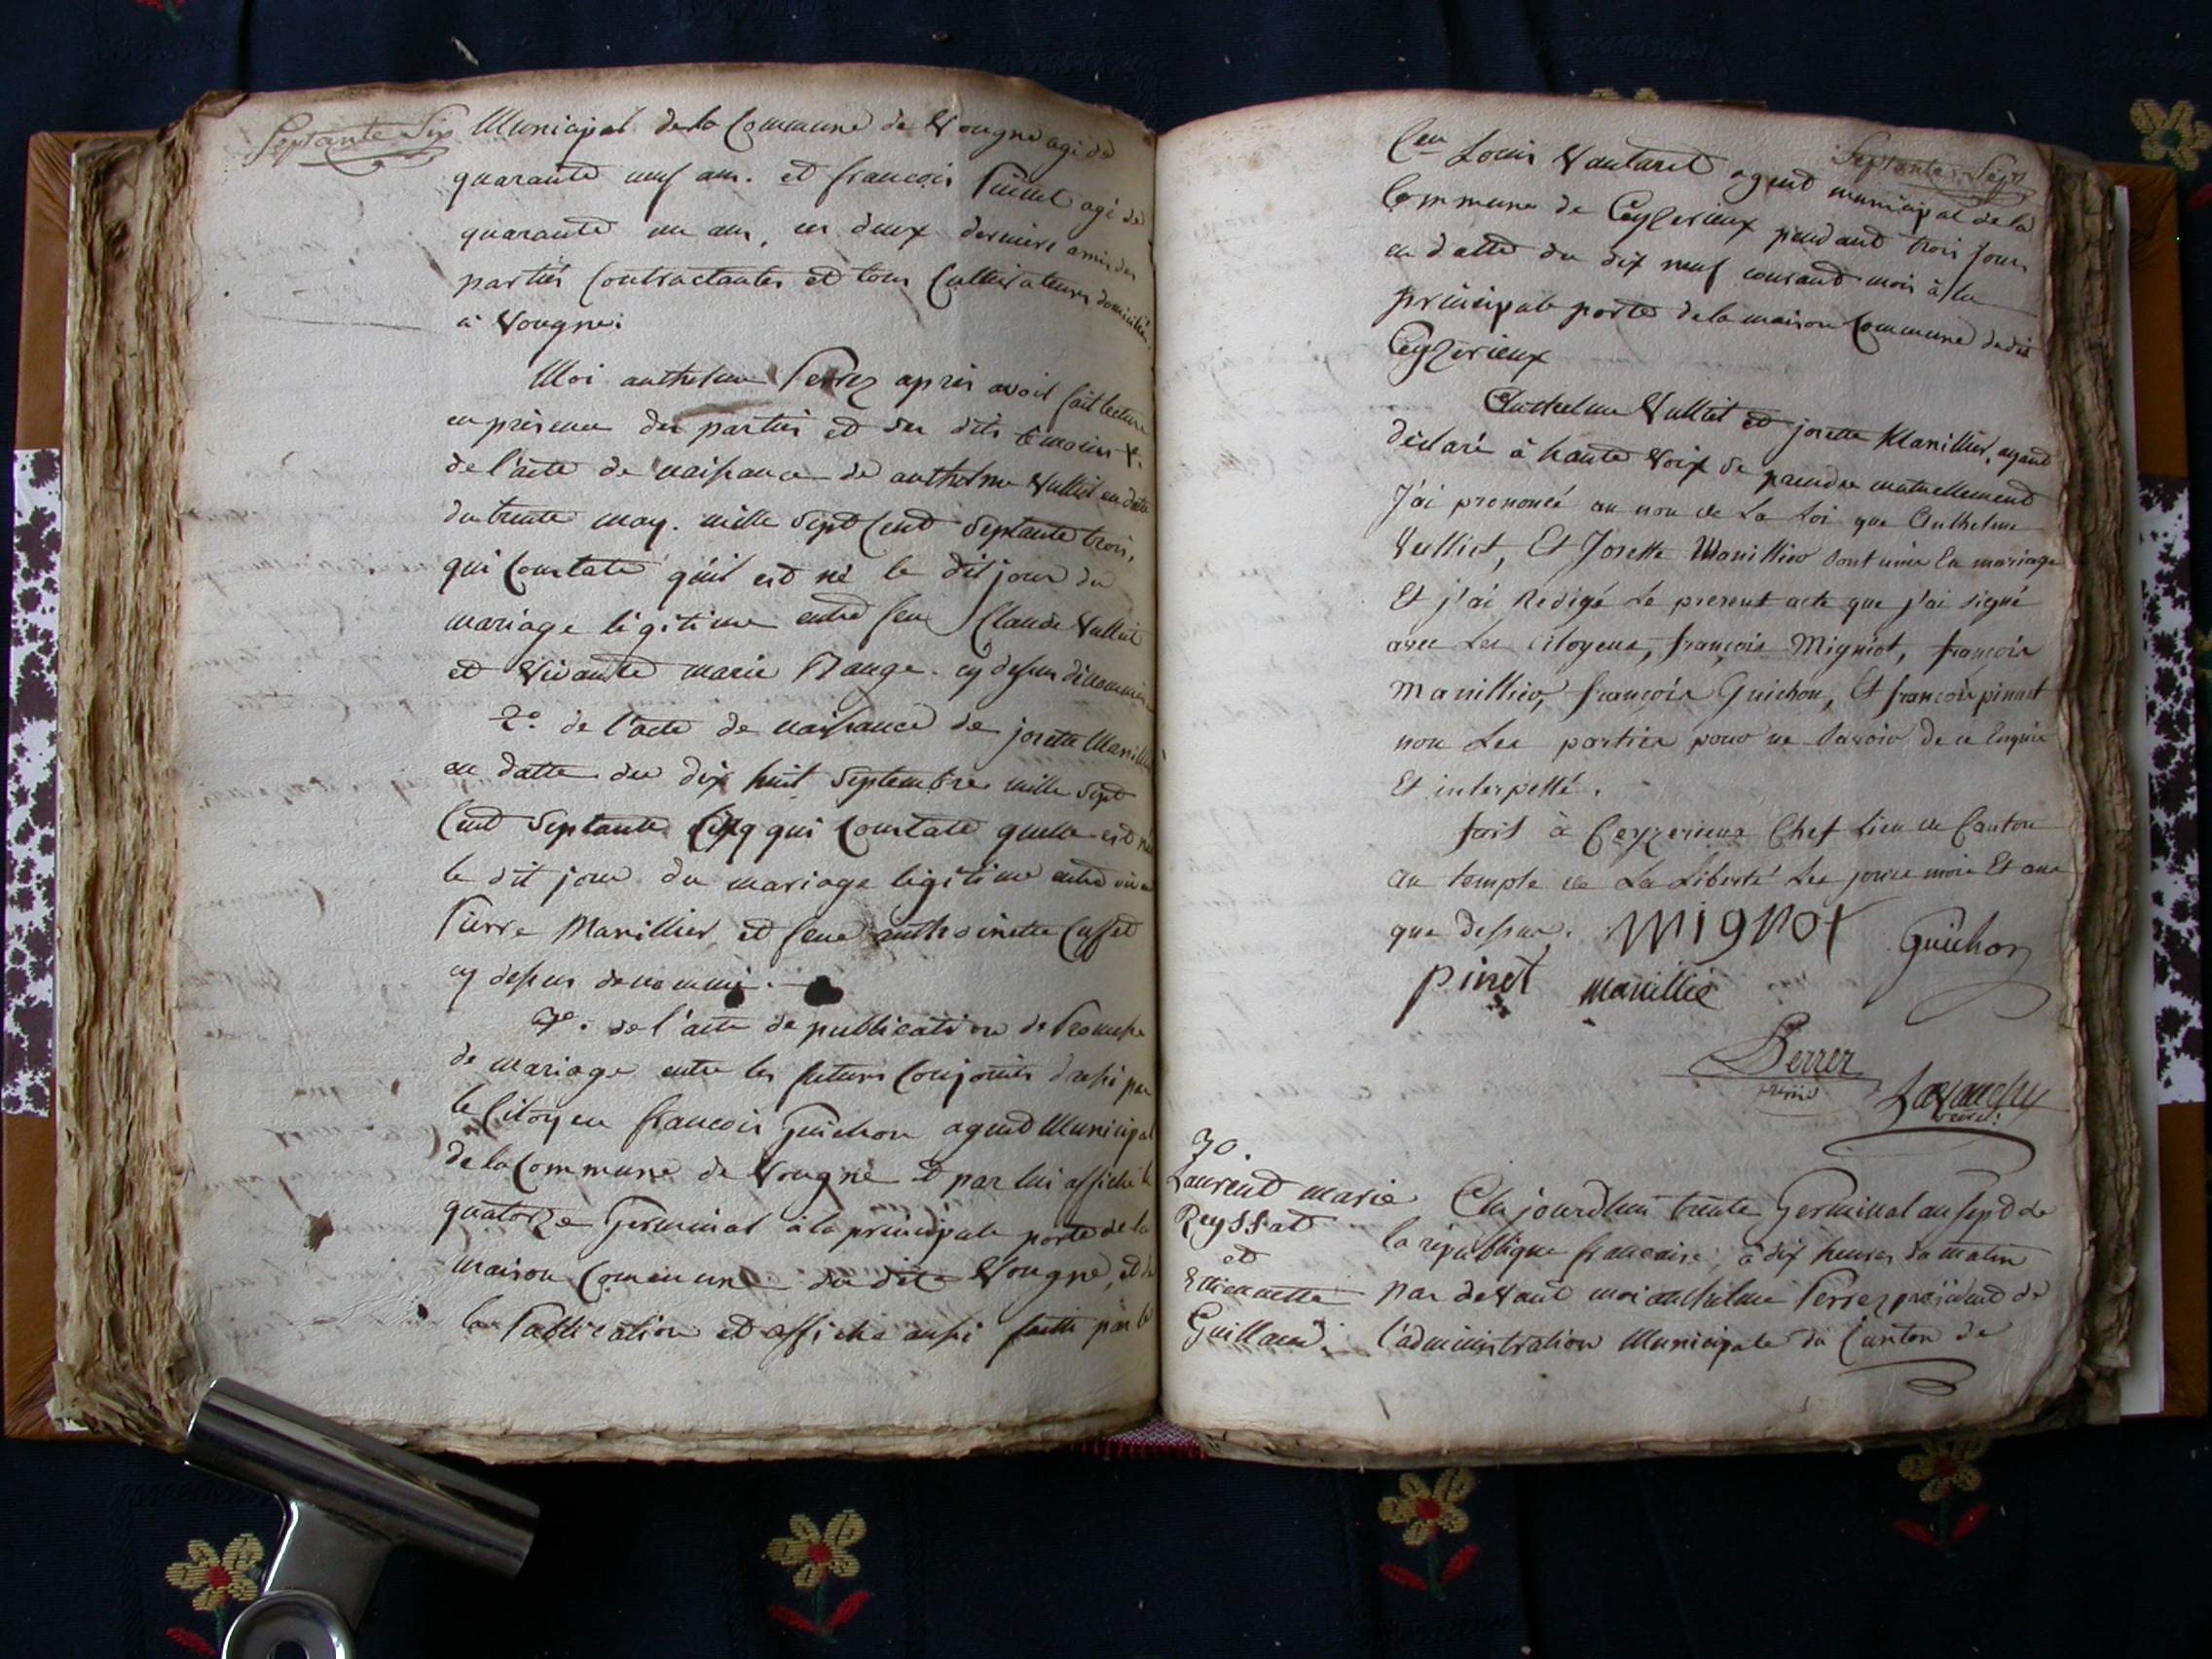 Septante Six
Municipal de la Commune de Vougne agé de
quarante neuf ans. et francois Pinet agé de
quarante un ans, les deux derniers amis des
parties Contractantes et tous Cultivateurs domiciliés
à Vougne.
Moi anthelme Perrez après avoir fait lecture
en présence des parties et des dits temoins 1°.
de l'acte de naissance de anthelme Vulliet en datte
du trente may. mille Sept Cent Septante trois,
qui Constate qu'il est né le dit jour du
mariage légitime entre feu Claude Vulliet
et Vivante marie cy dessus dénommés
2° de l'acte de naissance de josette Manillier
en datte du dix huit Septembre mille Sept
Cent Septante Cinq qui Constate quelle est née
le dit jour du mariage légitime entre vivant
Pierre Manillier et feue anthoinette Cusset
cy dessus denommé.
3°. de l'acte de publication de Promesse
de mariage entre les futurs Conjoints dressé par
le Citoyen francois Guichon agent Municipal
de la Commune de Vougne et par lui affiché le
quatorze Germinal à la principale porte de la
maison Commune du dit Vougne, et de
la Publication et affiche aussi faitte par le
Septante Sept
Cen Louis Vautaret agent municipal de la
Commune de Ceyzerieux pendant trois jours
en datte du dix neuf courant mois à la
principale porte de la maison Commune dudit
Ceyzérieux
Anthelme Vulliet et josette Manillier, ayant
déclaré à haute Voix se prendre mutuellement
J'ai prononcé au nom de La Loi que Anthelme
Vulliet, Et Josette Manillier Sont unis En mariage
Et j'ai Redigé Le present acte que j'ai signé
avec Les citoyens, françois Migniot, françois
Manillier, françois Guichon, Et francois pinet
non Les parties pour ne Savoir de ce Enquis
Et interpellé.
fait à Ceyzerieux Chef Lieu de Canton
au temple de La Liberté Les jours mois Et an
que dessus. Mignot Guichon
pinet manillié
Perrez
présid
30.
Laurent marie
Reyssat
et
Ettiennette
Guilland.
Au jourdhui trente Germinal an Sept de
la république francaise, à dix heures du matin
par devant moi anthelme Perrez président de
l'administration Municipale du Canton de